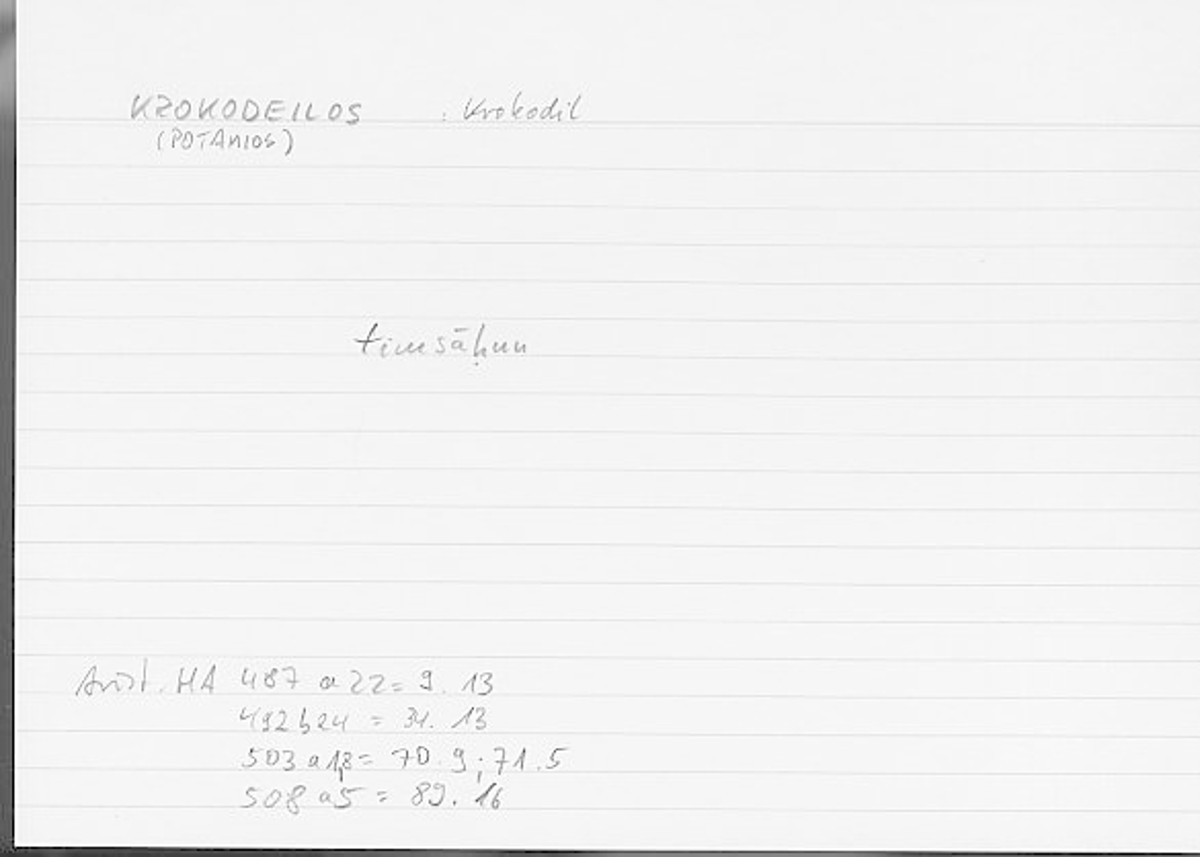 KROKODEILOS : Krokodil
(POTAMIOS)
timsāḥun
Arist. HA 487 a 22 = 9. 13
492 b 24 = 34. 13
503 a 1,8 = 70. 9; 71. 5
508 a 5 = 89. 16